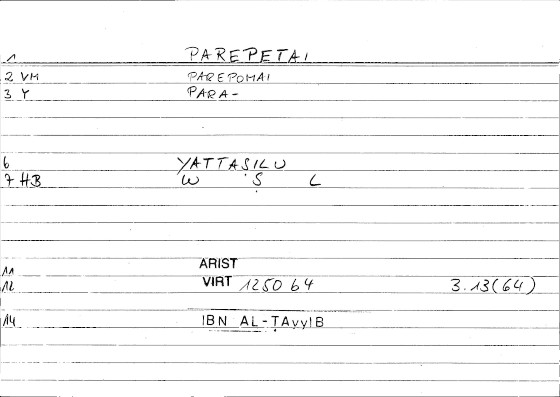 1 PAREPETAI
2 VM PAREPOMAI
3 Y PARA-
6 YATTAṢILU
7 HB W Ṣ L
11 ARIST
12 VIRT 1250 b4 3.13(64)
14 IBN AL-ṬAyyIB